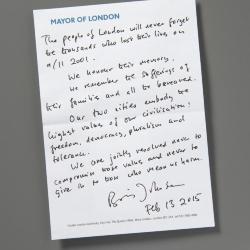 MAYOR OF LONDON
The people of London will never forget
the thousands who lost their lives on
9/11 2001.
We honour their memory.
We remember the sufferings of
their families and all the bereaved.
Our two cities embody the
highest values of our civilisation:
freedom, democracy, pluralism and
tolerance.
We are jointly resolved never to
compromise those values and never to
give in to those who mean us harm.
Boris Johnson
Feb 13 2015